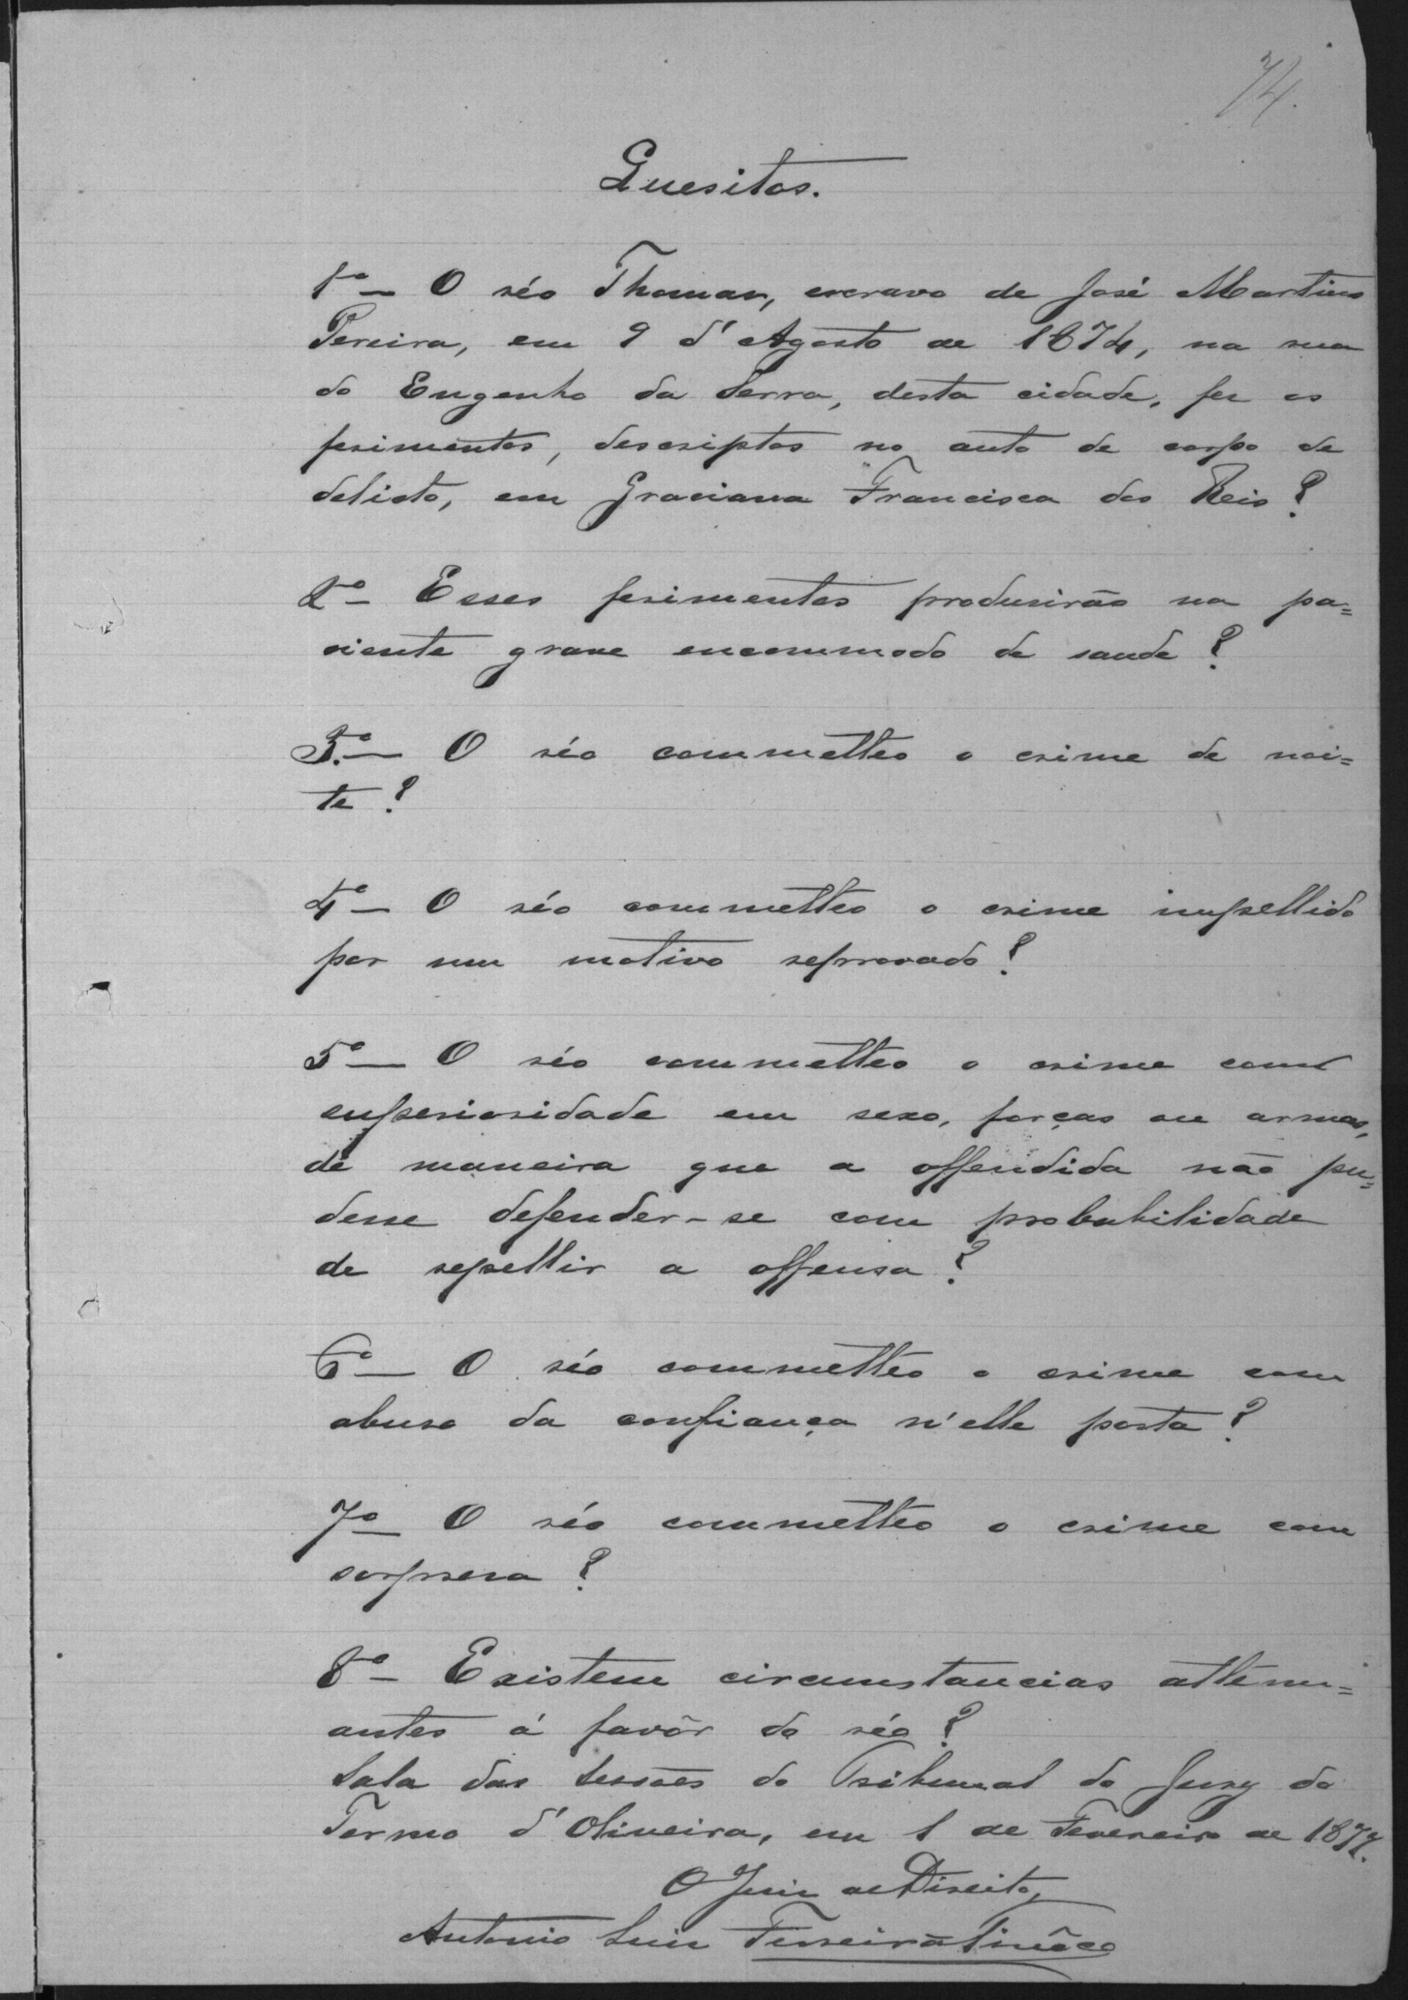 74.
Quesitos.
1º — O réo Thomas, escravo de José Martins
Pereira, em 9 d'Agosto de 1874, na rua
do Engenho da Serra, desta cidade, fez os
ferimentos, descriptos no auto de corpo de
delicto, em Graciana Francisca dos Reis?
2º — Esses ferimentos produsirão na pa=
ciente grave encommodo de saude?
3º — O réo commetteo o crime de noi=
te?
4º — O réo commetteo o crime impellido
por um motivo reprovado?
5º — O réo commetteo o crime com
superioridade em sexo, forças ou armas,
de maneira que a offendida não pu=
desse defender-se com probabilidade
de repellir a offensa?
6º — O réo commetteo o crime com
abuso da confiança n'elle posta?
7º — O réo commetteo o crime com
sorpresa?
8º — Existem circumstancias attenu=
antes á favôr do réo?
Sala das Sessões do Tribunal do Jury do
Termo d'Oliveira, em 1 de Fevereiro de 1877.
O Juiz de Direito,
Antonio Luiz Ferreira Tinôco